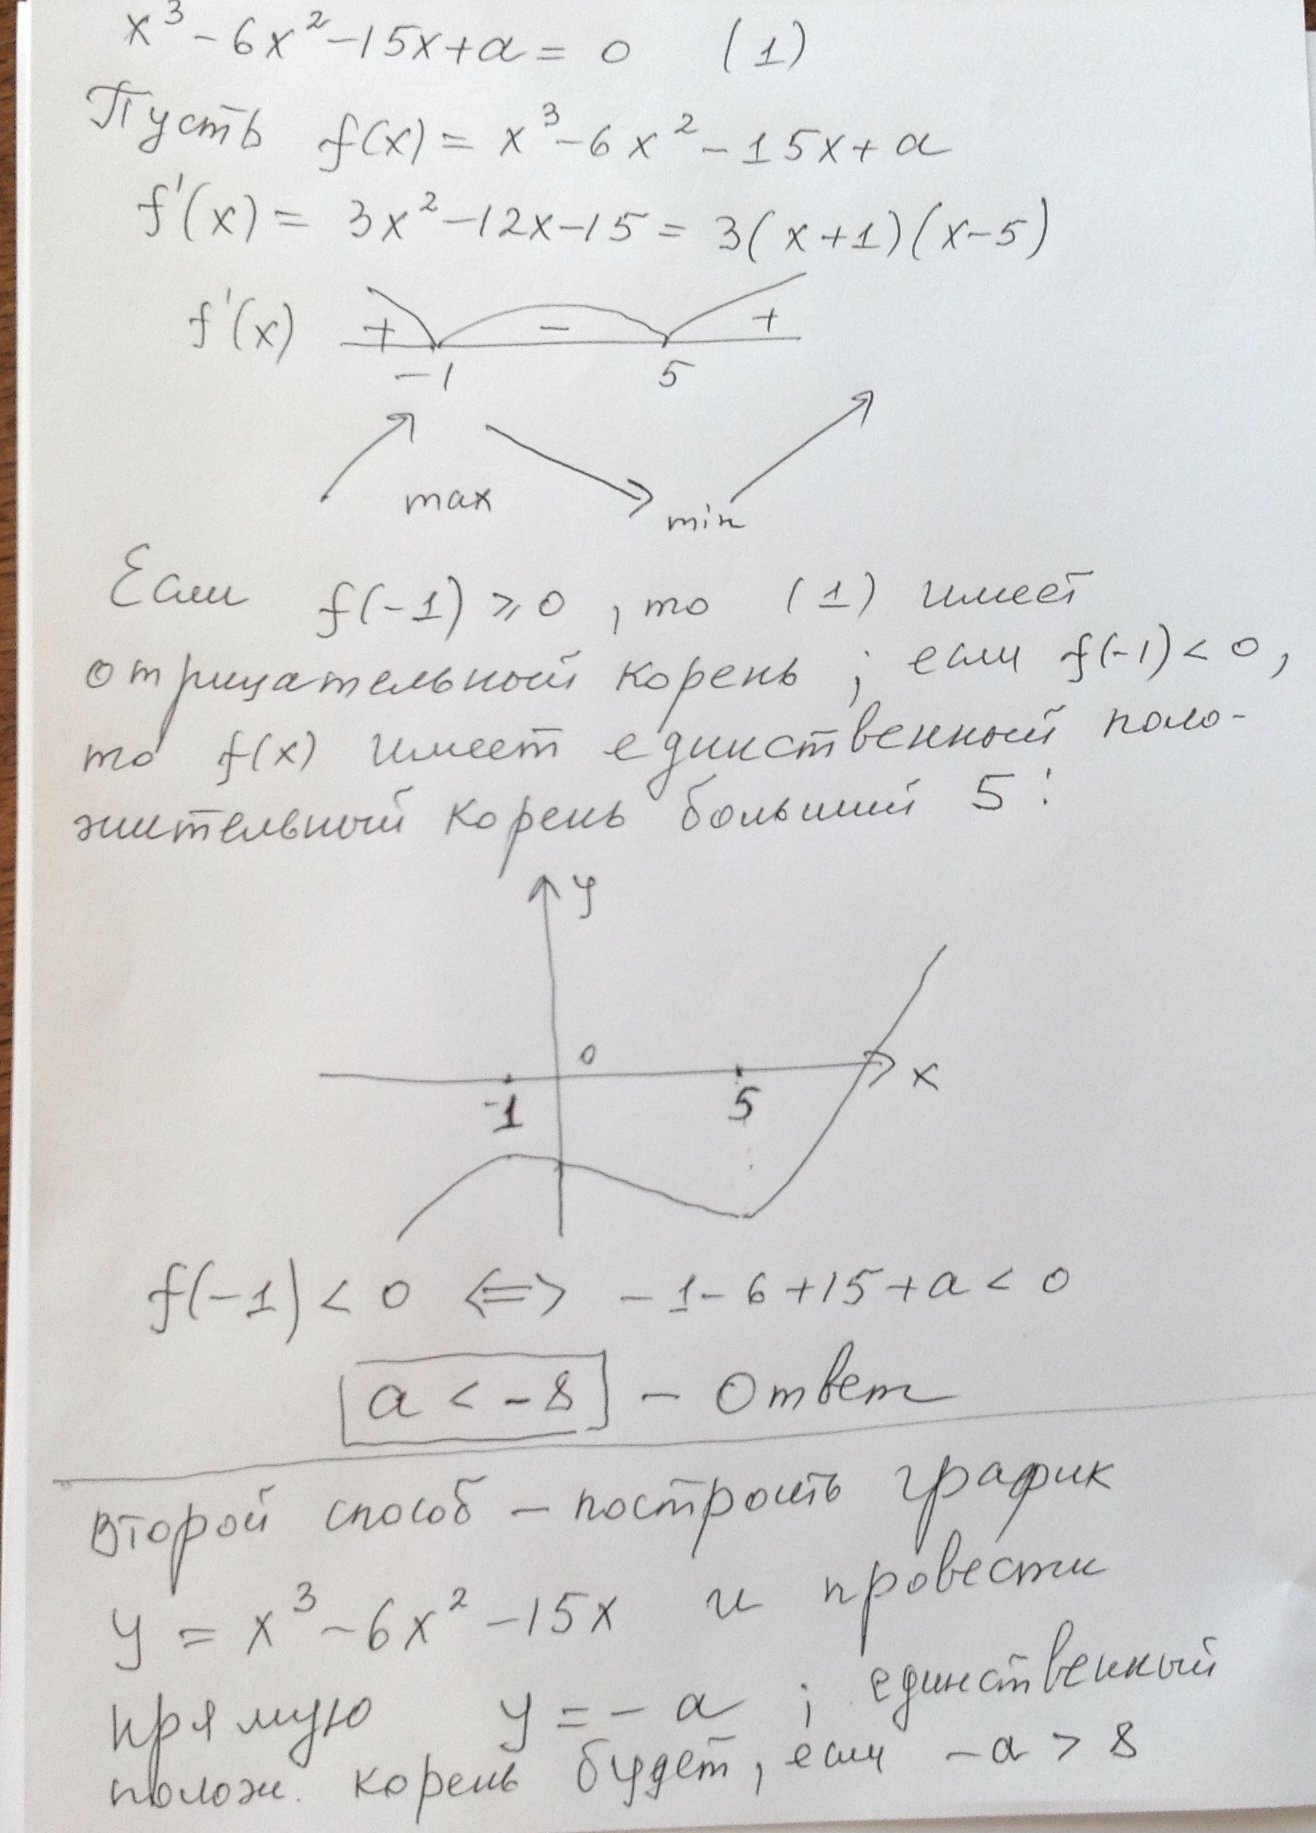 x³-6x²-15x+a=0 (1)
Пусть f(x)=x³-6x²-15x+a
f'(x)=3x²-12x-15=3(x+1)(x-5)
f'(x) + - +
-1 5
max min
Если f(-1)⩾0, то (1) имеет
отрицательный корень; если f(-1)<0,
то f(x) имеет единственный поло-
жительный корень больший 5:
y
0
-1 5 x
f(-1)<0 <=> -1-6+15+a<0
a<-8 - Ответ
Второй способ - построить график
y=x³-6x²-15x и провести
прямую y=-a; единственный
полож. корень будет, если -a>8